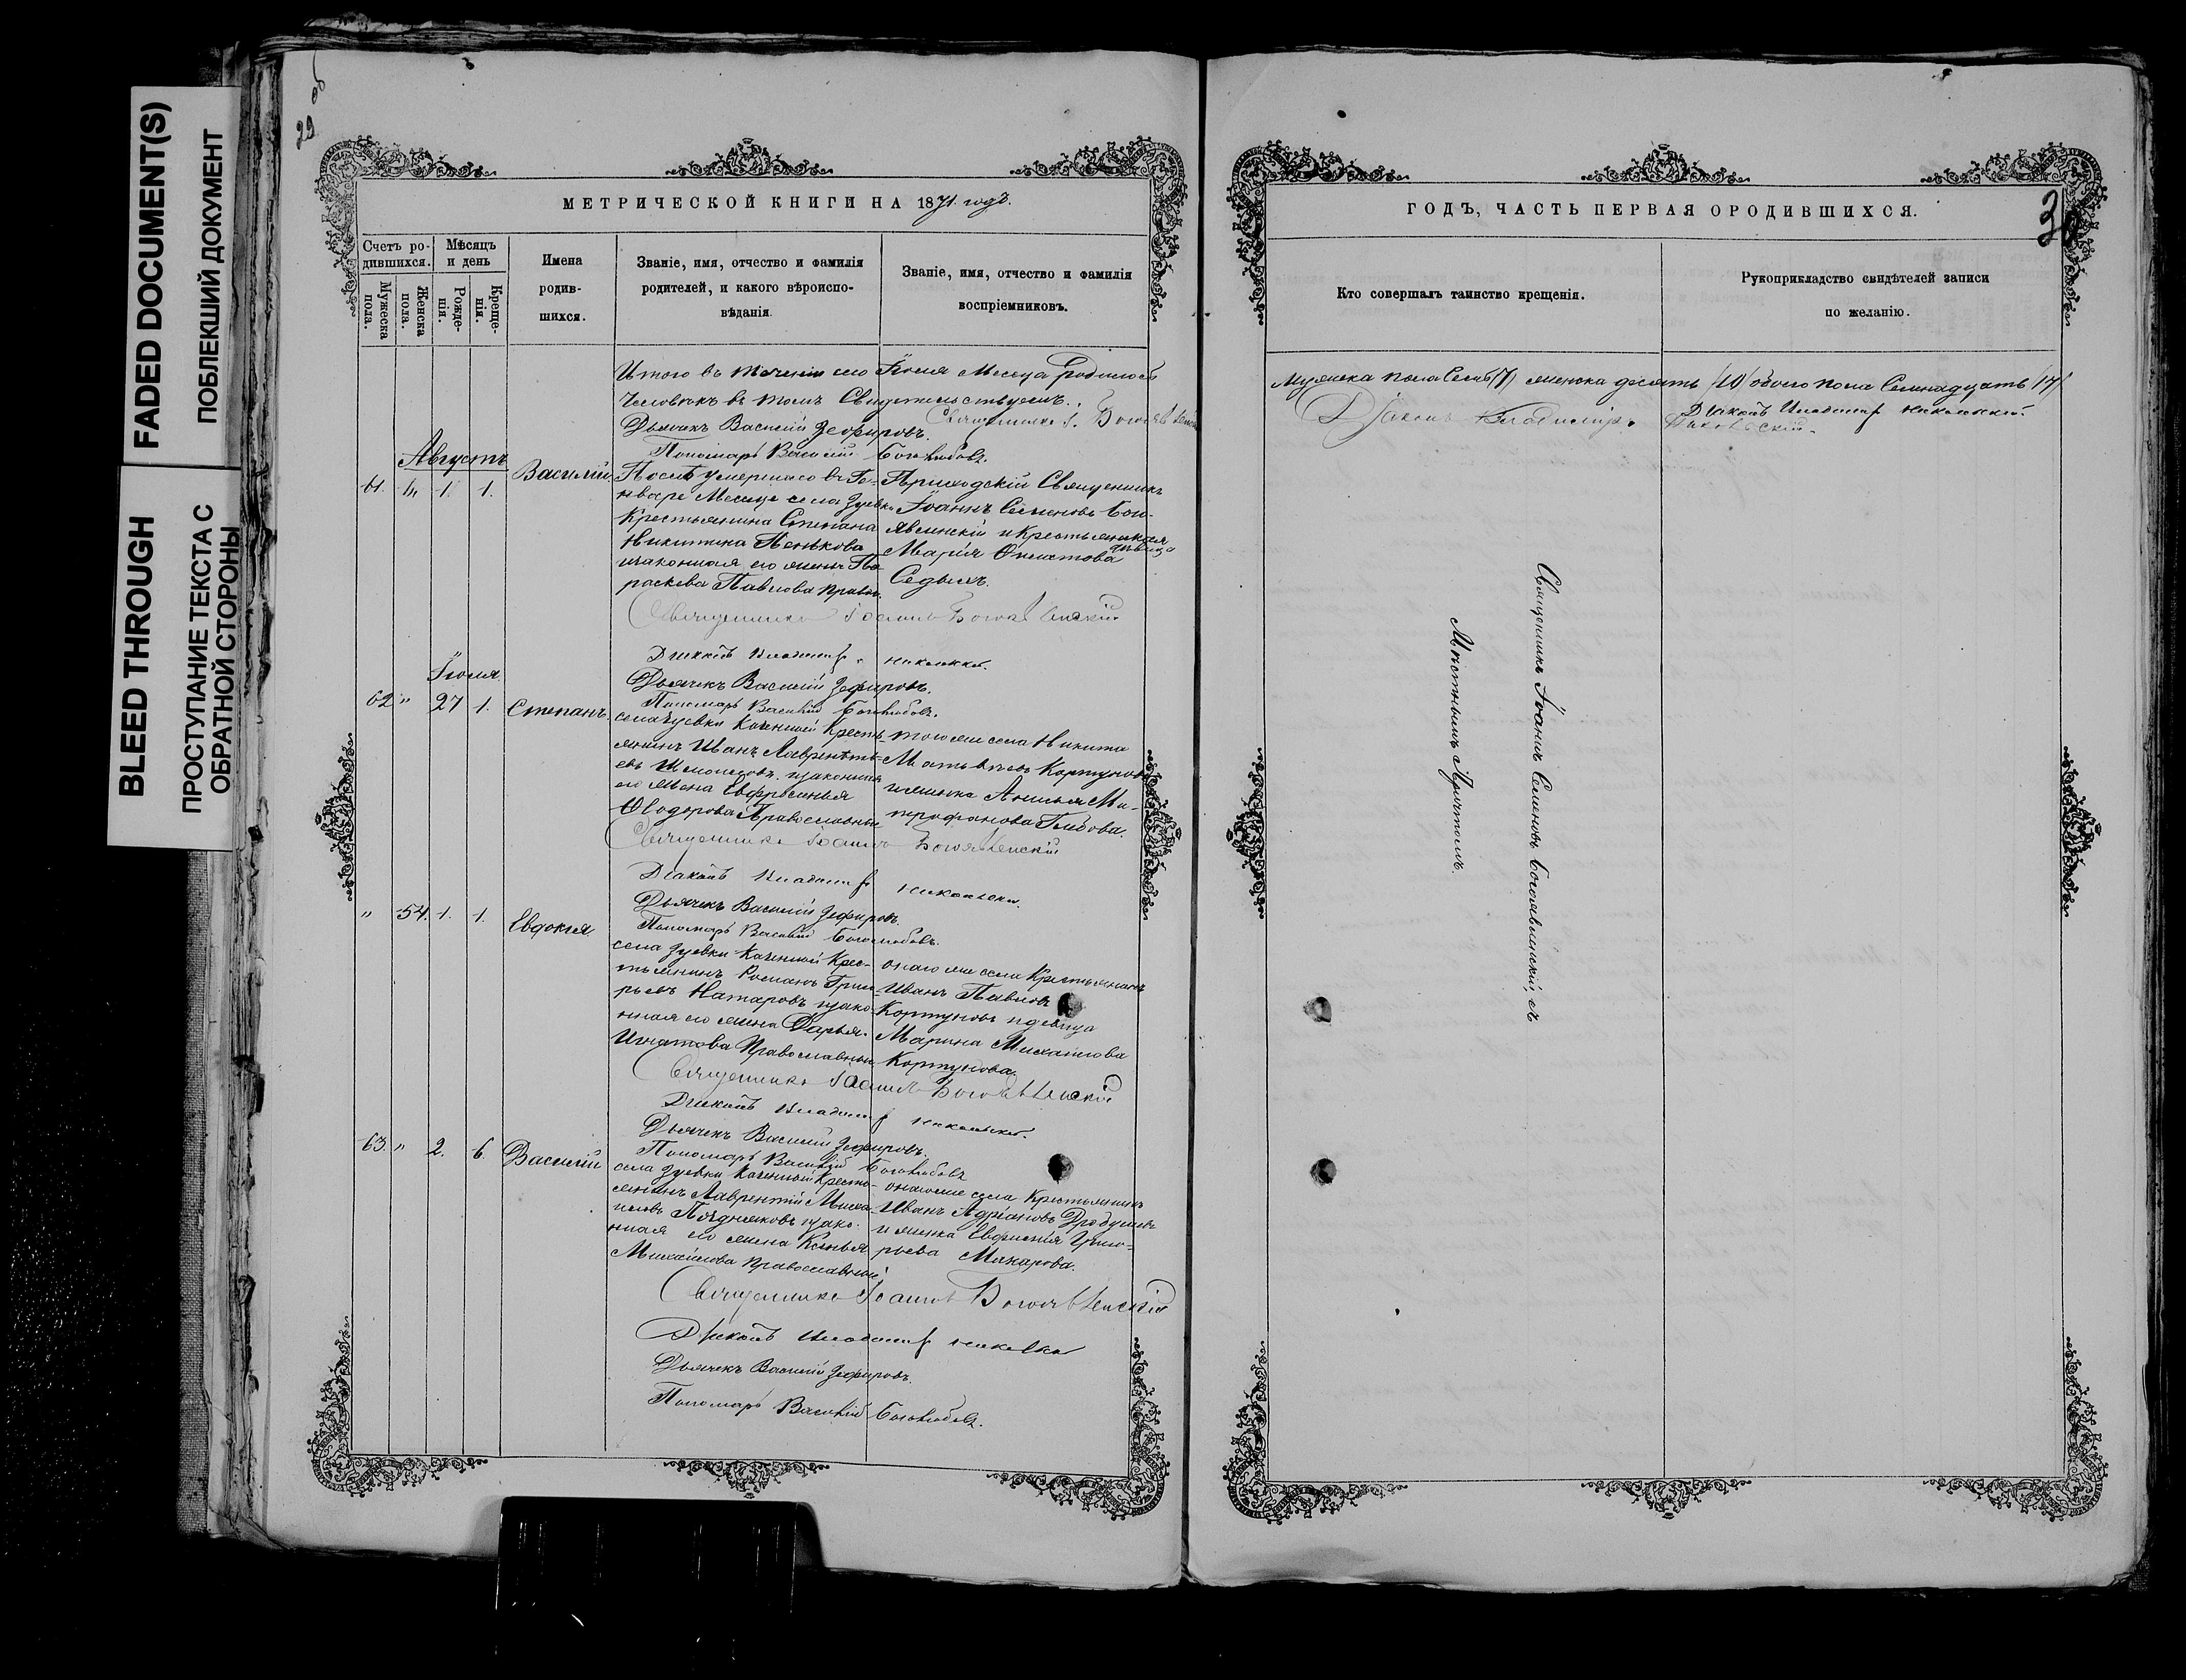 FADED DOCUMENT(S)
ПОБЛЕКШИЙ ДОКУМЕНТ
BLEED THROUGH
ПРОСТУПАНИЕ ТЕКСТА С
ОБРАТНОЙ СТОРОНЫ
29 об
МЕТРИЧЕСКОЙ КНИГИ НА 1871 годъ.
Счетъ ро-
дившихся.
Мужеска
пола.
Женска
пола.
Мѣсяцъ
и день
Рожде-
нія.
Креще-
нія.
Имена
родив-
шихся.
Званіе, имя, отчество и фамилія
родителей, и какого вѣроиспо-
вѣданія.
Званіе, имя, отчество и фамилія
воспріемниковъ.
Итого въ теченіи сего Іюля Месяца родилось
Человѣкъ въ томъ Свидетельствуемъ.
Священникъ І. Богоявленскій
Дьячекъ Василій Зефировъ.
Пономарь Василій Боголюбовъ.
Августъ
61. " 1. 1.
Василій
Послѣ умершаго въ Ге-
нваре Месяце села Зуевки
Крестьянина Степана
Никитина Пенькова
изаконная его жена Па-
раскева Павлова правос.
Приходскій Священникъ
Іоаннъ Семеновъ Бого-
явленскій и Крестьянская
девица
Марія Филатова
Седыхъ.
Священникъ Іоаннъ Богоявленскій
Діаконъ Владимір Никольскій.
Дьячекъ Василій Зефировъ.
Пономарь Василій Боголюбовъ.
Іюля
62 " 27 1.
Степанъ.
села Зуевки Казенной Кресть-
янинъ Иванъ Лаврентъ-
евъ изаконная
его жена Евфросинья
Ѳеодорова Православные
того же села Никита
Матвѣевъ Кортуновъ
и женка Анисья Ми-
трофанова Глебова.
Священникъ Іоаннъ Богоявленскій
Діаконъ Владимір Никольскій.
Дьячекъ Василій Зефировъ.
Пономарь Василій Боголюбовъ.
" 54. 1. 1.
Евдокія
села Зуевки Казенной Крес-
тьянинъ Романъ Григо-
рьевъ Натаровъ изако-
нная его жена Дарья
Игнатова Православные
онаго же села Крестьянинъ
Иванъ Павловъ
Кортуновъ и девица
Марина Михайлова
Кортунова.
Священникъ Іоаннъ Богоявленскій
Діаконъ Владимір Никольскій.
Дьячекъ Василій Зефировъ.
Пономарь Василій Боголюбовъ
63. " 2. 6.
Василій
села Зуевки Казенной Кресть-
янинъ Лаврентій Миха-
иловъ Поздняковъ изако-
нная его жена Ксенья
Михайлова православные
онаго же села Крестьянинъ
Иванъ Адріановъ
и женка Евфимія Григо-
рьева Макарова.
Священникъ Іоаннъ Богоявленскій
Діаконъ Владимір Никольскій
Дьячекъ Василій Зефировъ.
Пономарь Василій Боголюбовъ.
ГОДЪ, ЧАСТЬ ПЕРВАЯ О РОДИВШИХСЯ.
30
Кто совершалъ таинство крещенія.
Рукоприкладство свидѣтелей записи
по желанію.
мужеска пола семь /7/ женска десять /10/ обоего пола Семнадцать /17/
Діаконъ Владимір Никольскій
Діаконъ Владимір Никольскій.
Священникъ Іоаннъ Семеновъ Богоявленскій, съ
Местнымъ Причтомъ.